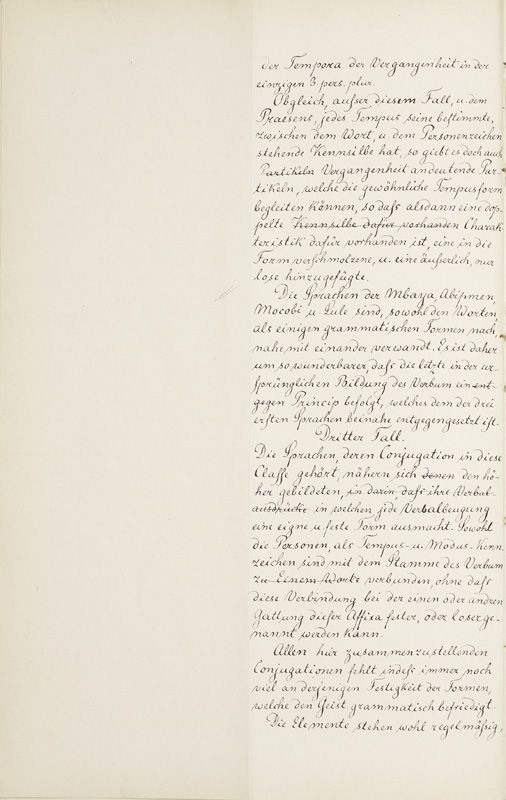 der Tempora der Vergangenheit in der
einzigen 3. pers. plur.
Obgleich, ausser diesem Fall, u. dem
Praesens, jedes Tempus seine bestimmte,
zwischen dem Wort, u. dem Personenzeichen
stehende Kennsilbe hat, so giebt es doch auch
Partikeln Vergangenheit andeutende Par-
tikeln, welche die gewöhnliche Tempusform
begleiten können, so dass alsdann eine dop-
pelte Kennsilbe dafür vorhanden Charak-
teristik dafür vorhanden ist, eine in die
Form verschmolzene, u. eine äusserlich, nur
lose hinzugefügte.
Die Sprachen der Mbaya, Abiponen,
Mocobi u. Lule sind, sowohl den Worten,
als einigen grammatischen Formen nach,
nahe mit einander verwandt. Es ist daher
um so wunderbarer, dass die letzte in der ur-
sprünglichen Bildung des Verbum ein ent-
gegen Princip befolgt, welches dem der drei
ersten Sprachen beinahe entgegengesetzt ist.
Dritter Fall.
Die Sprachen, deren Conjugation in diese
Classe gehört, nähern sich denen den hö-
her gebildeten, in darin, dass ihre Verbal-
ausdrücke in welchen jede Verbalbeugung
eine eigne u. feste Form ausmacht. Sowohl
die Personen, als Tempus- u. Modus-Kenn-
zeichen sind mit dem Stamme des Verbum
zu Einem Worte verbunden, ohne dass
diese Verbindung bei der einen oder andren
Gattung dieser Affixa fester, oder loser ge-
nannt werden kann.
Allen hier zusammenzustellenden
Conjugationen fehlt indess immer noch
viel an derjenigen Festigkeit der Formen,
welche den Geist grammatisch befriedigt.
Die Elemente stehen wohl regelmässig,